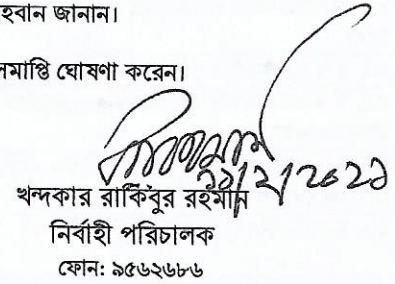 হবান জানান।
সমাপ্তি ঘোষণা করেন।
১১/২/২০২১
খন্দকার রাকিবুর রহমান
নির্বাহী পরিচালক
ফোন: ৯৫৬২৬৮৬